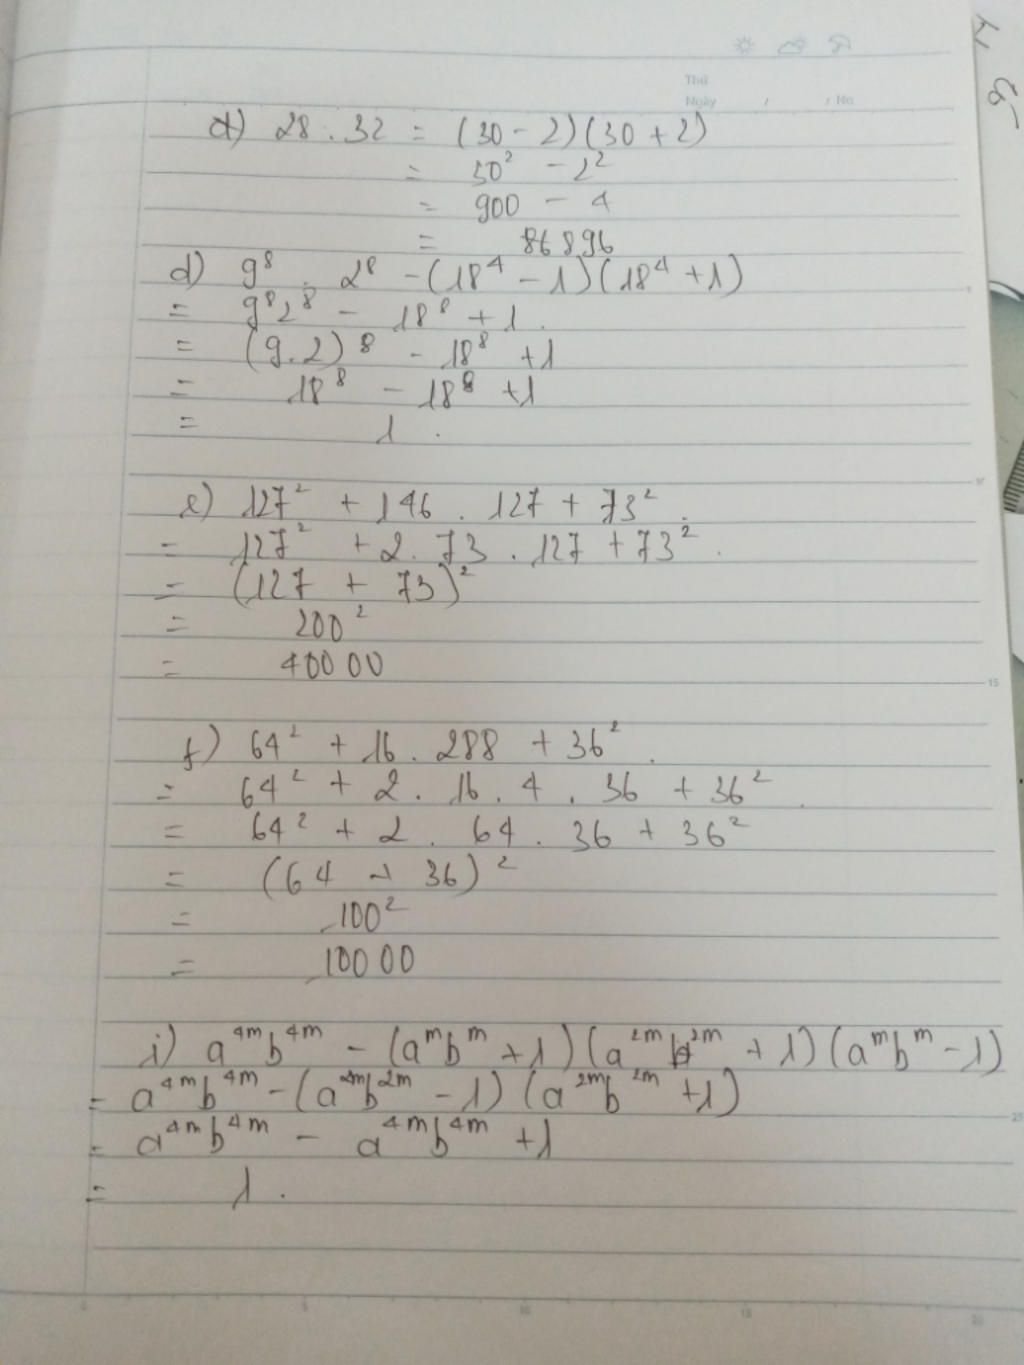 Thứ
Ngày / / No
d) 28 . 32 = (30 - 2)(30 + 2)
= 30² - 2²
= 900 - 4
= 896
d) 9⁸ . 2⁸ - (18⁴ - 1)(18⁴ + 1)
= 9⁸2⁸ - 18⁸ + 1.
= (9.2)⁸ - 18⁸ + 1
= 18⁸ - 18⁸ + 1
= 1.
e) 127² + 146 . 127 + 73².
= 127² + 2. 73 . 127 + 73².
= (127 + 73)²
= 200²
= 40000
f) 64² + 16 . 288 + 36².
= 64² + 2. 16 . 4 . 36 + 36².
= 64² + 2 . 64 . 36 + 36²
= (64 + 36)²
= 100²
= 10000
i) a⁴ᵐb⁴ᵐ - (aᵐbᵐ + 1)(a²ᵐb²ᵐ + 1)(aᵐbᵐ - 1)
= a⁴ᵐb⁴ᵐ - (a²ᵐb²ᵐ - 1)(a²ᵐb²ᵐ + 1)
= a⁴ᵐb⁴ᵐ - a⁴ᵐb⁴ᵐ + 1
= 1.